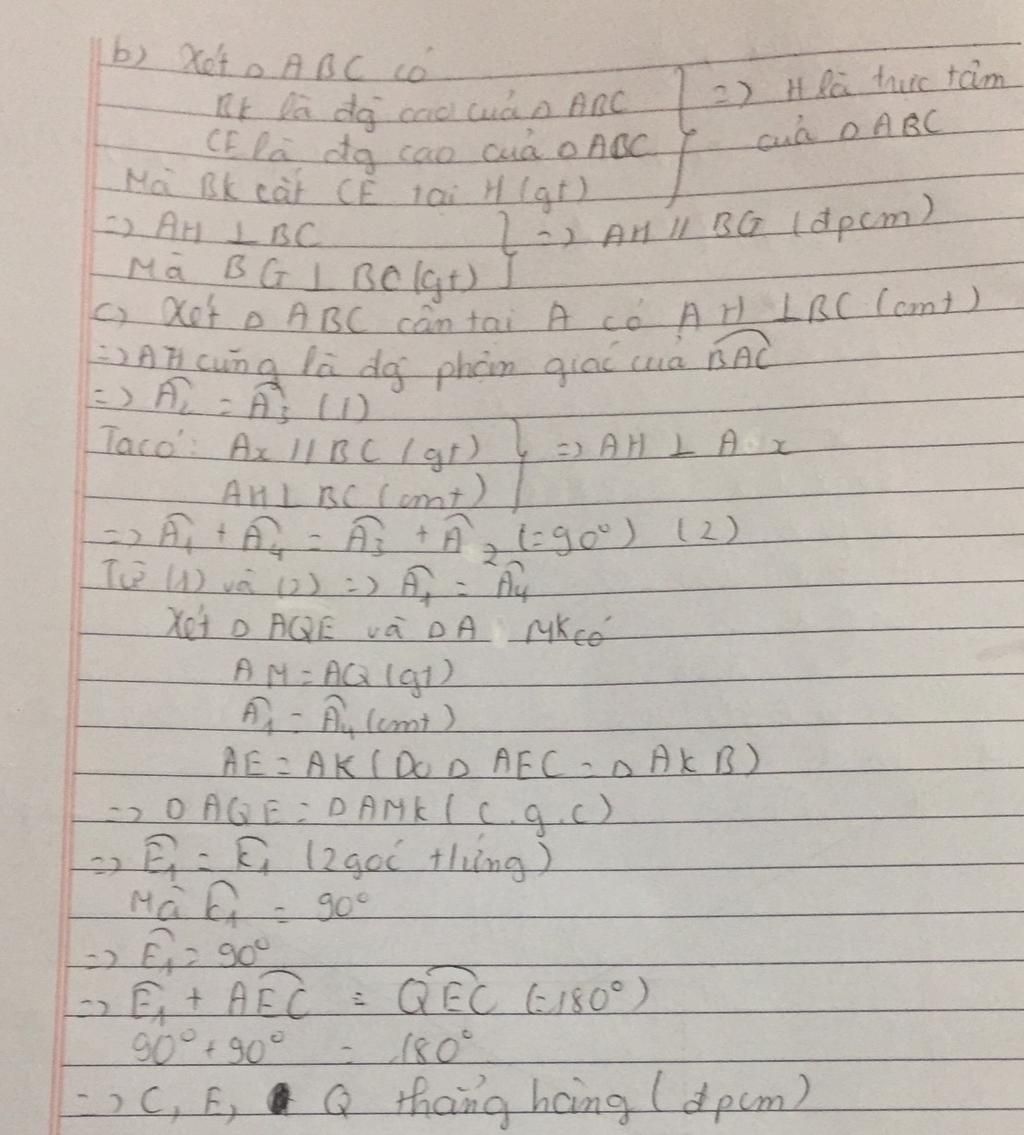 b) Xét Δ ABC có
BK là đg cao của Δ ABC } => H là trực tâm
CE là đg cao của Δ ABC } của Δ ABC
Mà BK cắt CE tại H (gt)
=> AH ⊥ BC } => AH // BG (đpcm)
Mà BG ⊥ BC (gt)
c) Xét Δ ABC cân tại A có AH ⊥ BC (cmt)
=> AH cũng là đg phân giác của \widehat{BAC}
=> \widehat{A_2} = \widehat{A_3} (1)
Ta có: Ax // BC (gt) } => AH ⊥ Ax
AH ⊥ BC (cmt)
=> \widehat{A_1} + \widehat{A_4} = \widehat{A_3} + \widehat{A_2} (=90°) (2)
Từ (1) và (2) => \widehat{A_1} = \widehat{A_4}
Xét Δ AQE và Δ A MK có
AM = AQ (gt)
\widehat{A_1} = \widehat{A_4} (cmt)
AE = AK (Do Δ AEC = Δ AKB)
=> Δ AQE = Δ AMK (c.g.c)
=> \widehat{E_1} = \widehat{K_1} (2 góc tứng)
Mà \widehat{K_1} = 90°
=> \widehat{E_1} = 90°
=> \widehat{E_1} + \widehat{AEC} = \widehat{QEC} (=180°)
90° + 90° = 180°
=> C, E, Q thẳng hàng (đpcm)